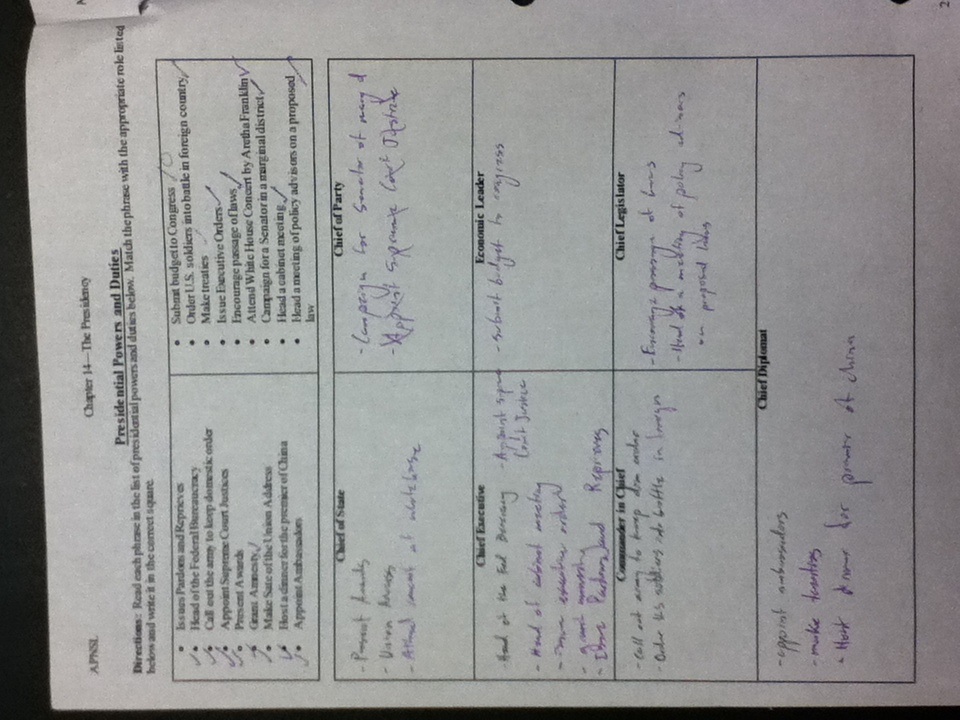 APNSL
Chapter 14—The Presidency
Presidential Powers and Duties
Directions: Read each phrase in the list of presidential powers and duties below. Match the phrase with the appropriate role listed
below and write it in the correct square.
• Issues Pardons and Reprieves
• Head of the Federal Bureaucracy
• Call out the army to keep domestic order
• Appoint Supreme Court Justices
• Present Awards
• Grant Amnesty
• Make Sate of the Union Address
• Host a dinner for the premier of China
• Appoint Ambassadors
• Submit budget to Congress
• Order U.S. soldiers into battle in foreign country
• Make treaties
• Issue Executive Orders
• Encourage passage of laws
• Attend White House Concert by Aretha Franklin
• Campaign for a Senator in a marginal district
• Head a cabinet meeting
• Head a meeting of policy advisors on a proposed
law
Chief of State
- Present Awards
- Union
- Attend concert at whitehouse
Chief of Party
- Campaign for Senator of marg d
- Appoint Supreme Court Justice
Chief Executive
- Head of the Fed
- Appoint supreme
Court Justice
- Head of cabinet meeting
- Issue executive orders
- grant
- Issue Pardons and Reprieves
Economic Leader
- Submit budget to congress
Commander in Chief
- Call out army to keep dom order
- Order US soldiers into battle in foreign
Chief Legislator
- Encourage passage of laws
- Head of a meeting of policy advisors
on proposed laws
Chief Diplomat
- appoint ambassadors
- make treaties
- Host dinner for premier of china
2